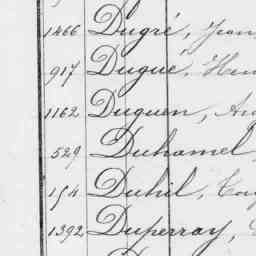 1466 Dugré, Jean
917 Dugué, Hen
1162 Duguen, Au
529 Duhamel
154 Duhil, Eug
1392 Duperray,